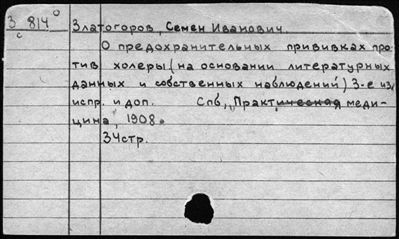 З 814° Златогоров, Семен Иванович.
с О предохранительных прививках про
тив холеры (на основании литературных
данных и собственных наблюдений) 3-е из
испр. и доп. Спб, „Практическая меди-
цина", 1908.
34стр.